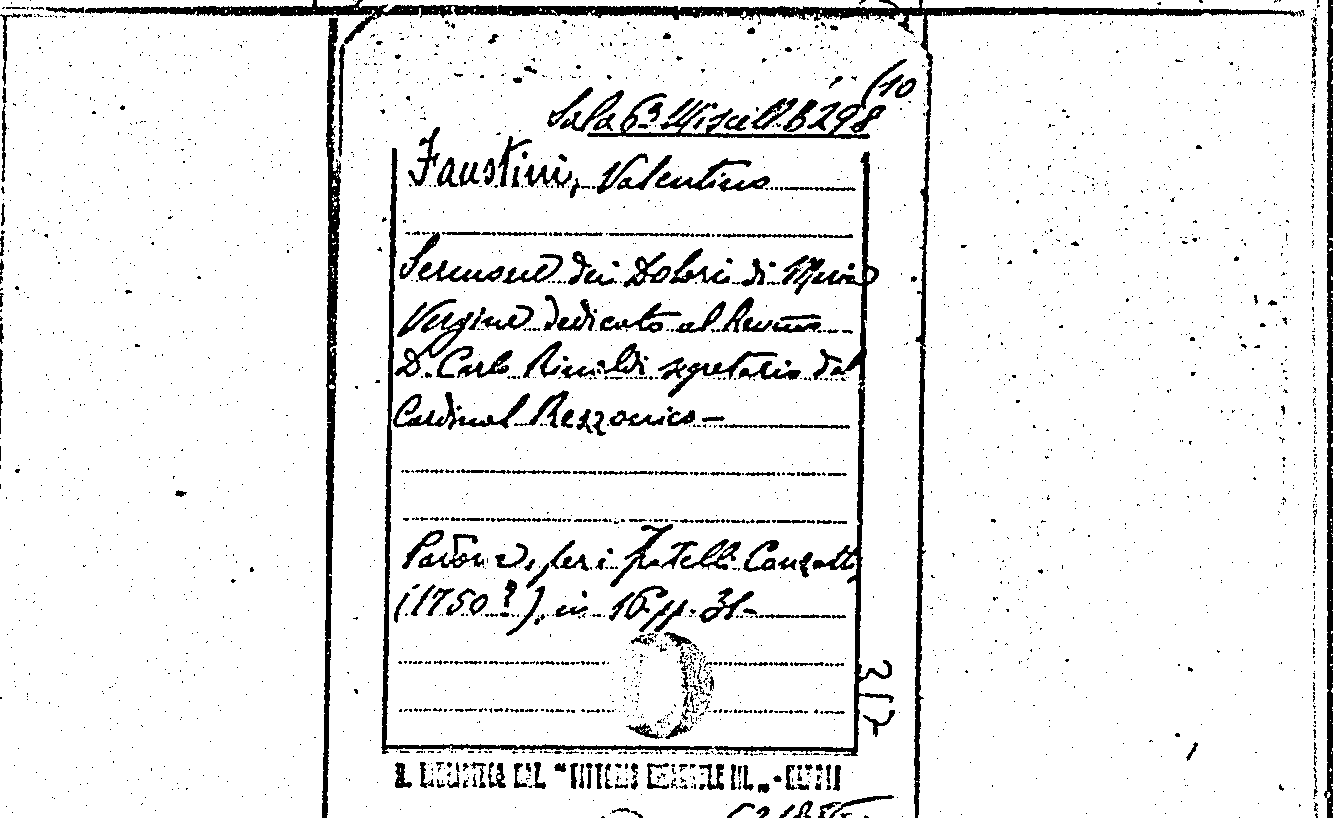 (10
Sala 6ª Miscell. B 298
Faustini, Valentino
Sermone dei Dolori di Maria
Vergine dedicato al Revmo
D. Carlo Rinaldi segretario del
Cardinal Rezzonico –
Padova, per i fratelli Conzatti
(1750?), in 16 pp. 31-
R. BIBLIOTECA NAZ. "VITTORIO EMANUELE III" - NAPOLI